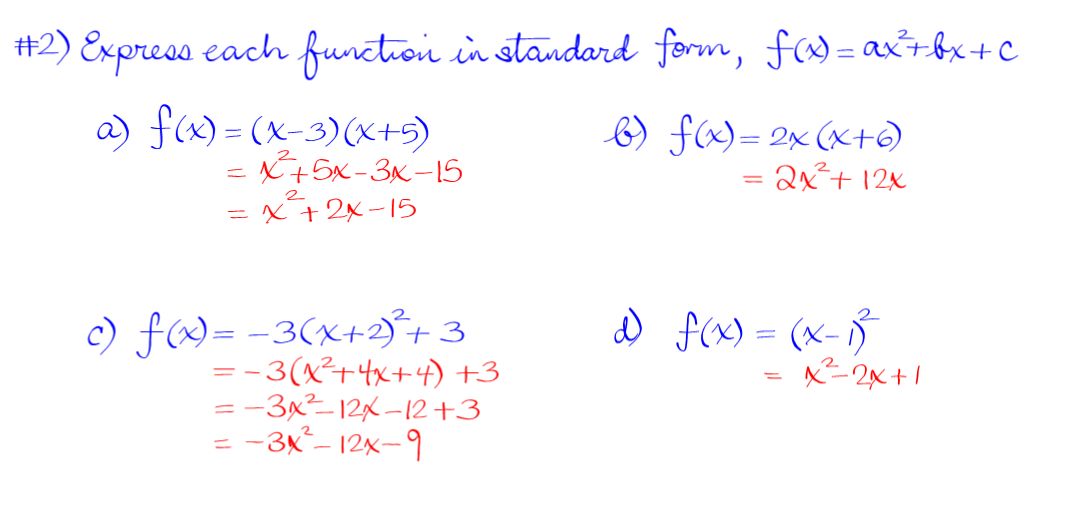 #2) Express each function in standard form, f(x) = ax²+bx+c
a) f(x) = (x-3)(x+5)
= x²+5x-3x-15
= x²+2x-15
b) f(x) = 2x(x+6)
= 2x²+12x
c) f(x) = -3(x+2)²+3
= -3(x²+4x+4)+3
= -3x²-12x-12+3
= -3x²-12x-9
d) f(x) = (x-1)²
= x²-2x+1